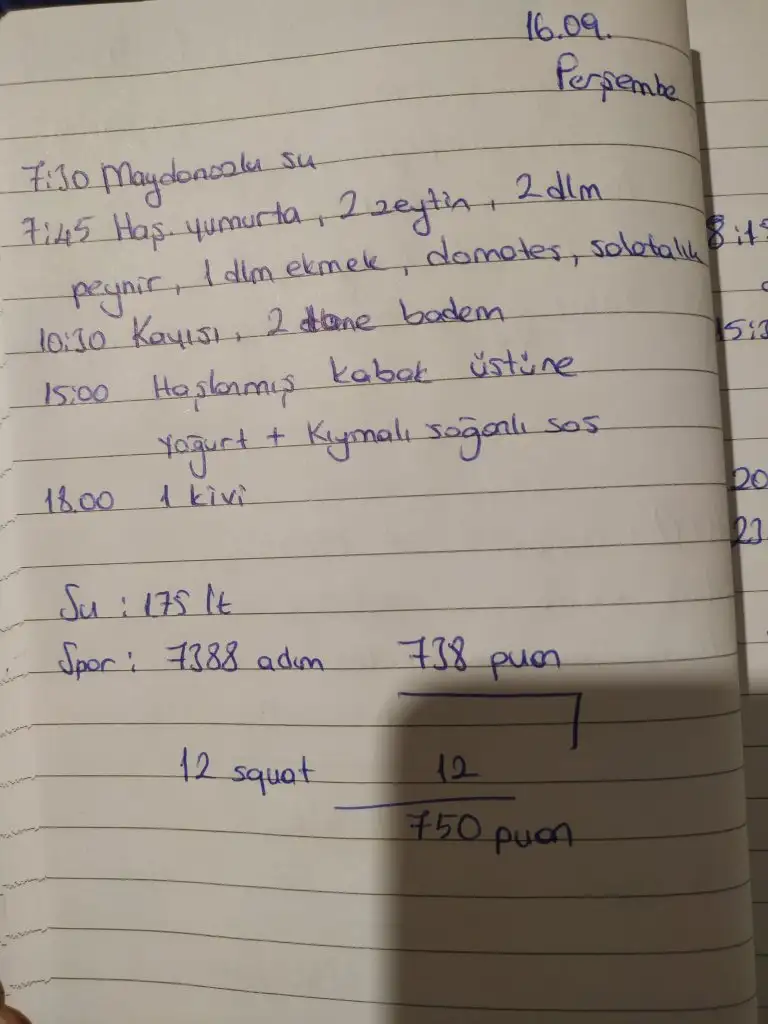 16.09.
Perşembe
7:30 Maydonozlu su
7:45 Haş. yumurta, 2 zeytin, 2 dlm
peynir, 1 dlm ekmek, domates, salatalık
10:30 Kayısı, 2 tane badem
15:00 Haşlanmış kabak üstüne
yoğurt + Kıymalı soğanlı sos
18.00 1 kivi
Su : 175 lt
Spor: 7388 adım 738 puan
12 squat 12
750 puan
20
23